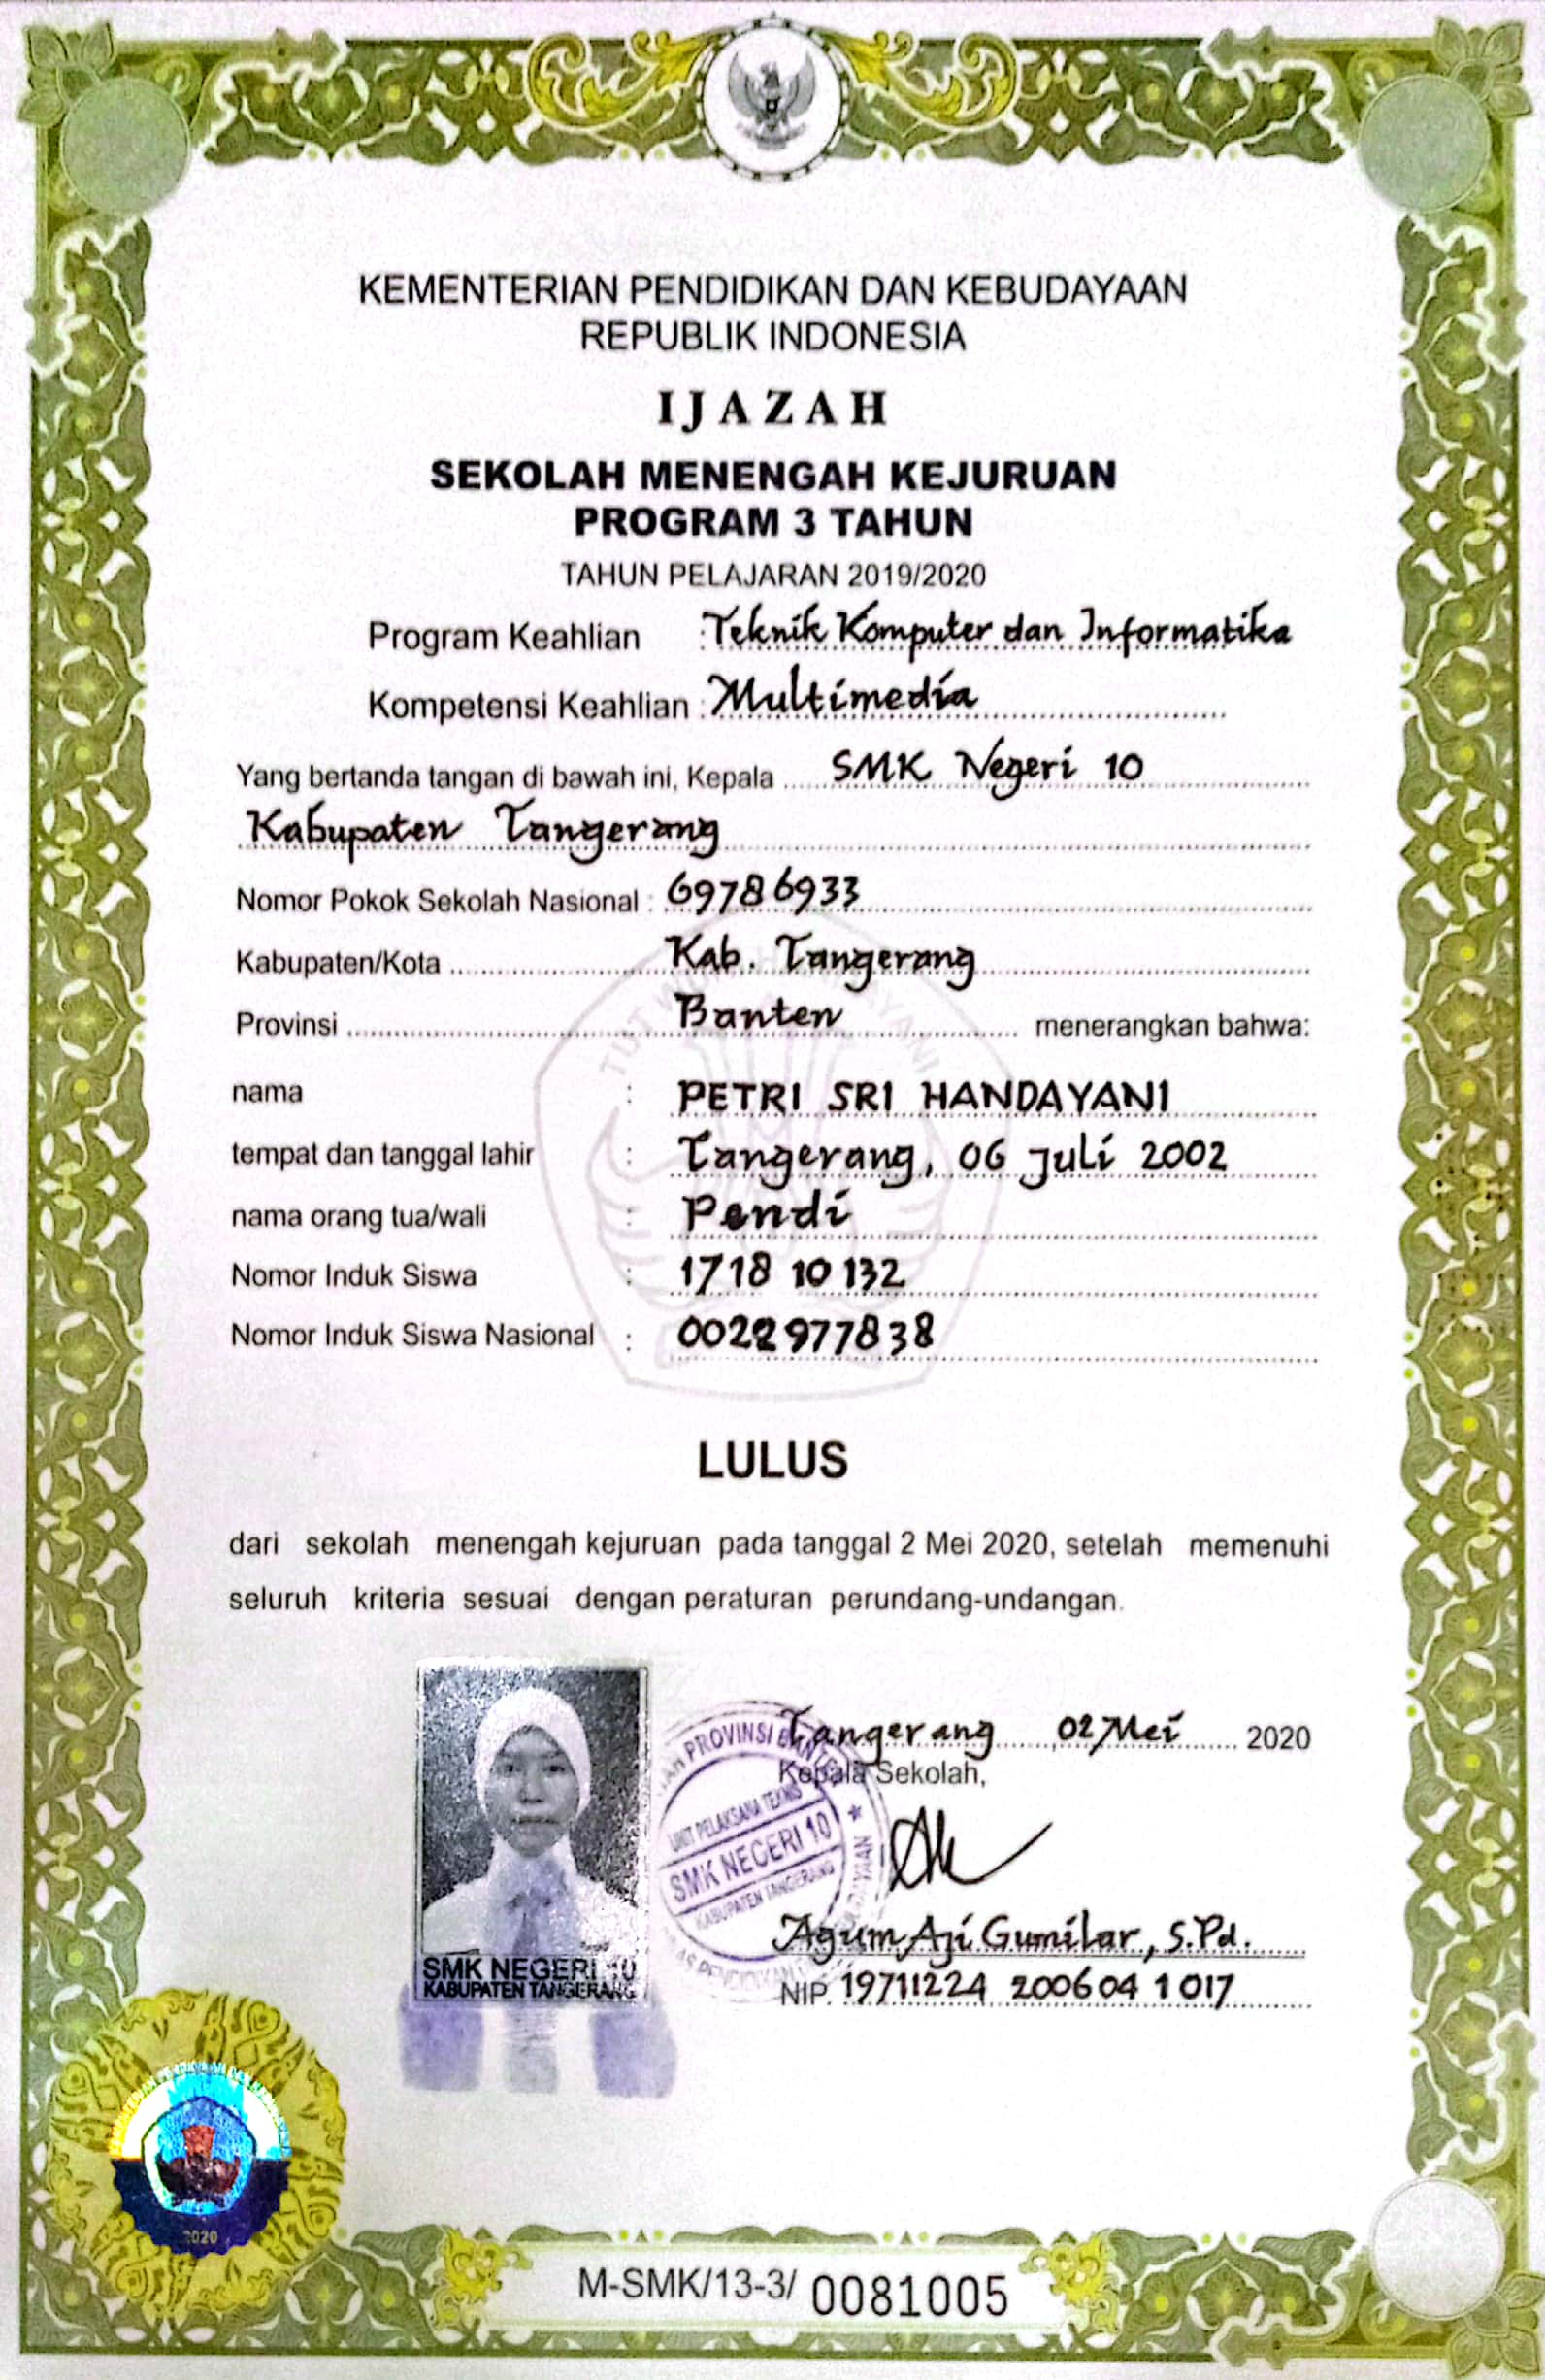 KEMENTERIAN PENDIDIKAN DAN KEBUDAYAAN
REPUBLIK INDONESIA
IJAZAH
SEKOLAH MENENGAH KEJURUAN
PROGRAM 3 TAHUN
TAHUN PELAJARAN 2019/2020
Program Keahlian : Teknik Komputer dan Informatika
Kompetensi Keahlian : Multimedia
Yang bertanda tangan di bawah ini, Kepala SMK Negeri 10
Kabupaten Tangerang
Nomor Pokok Sekolah Nasional : 69786933
Kabupaten/Kota Kab. Tangerang
Provinsi Banten menerangkan bahwa:
nama : PETRI SRI HANDAYANI
tempat dan tanggal lahir : Tangerang, 06 Juli 2002
nama orang tua/wali : Pendi
Nomor Induk Siswa : 1718 10 132
Nomor Induk Siswa Nasional : 0022977838
LULUS
dari sekolah menengah kejuruan pada tanggal 2 Mei 2020, setelah memenuhi
seluruh kriteria sesuai dengan peraturan perundang-undangan.
Tangerang, 02 Mei 2020
Kepala Sekolah,
PROVINSI BANTEN
UNIT PELAKSANA TEKNIS
SMK NEGERI 10
KABUPATEN TANGERANG
Agum Aji Gumilar, S.Pd.
NIP. 19711224 200604 1 017
SMK NEGERI 10
KABUPATEN TANGERANG
2020
M-SMK/13-3/ 0081005